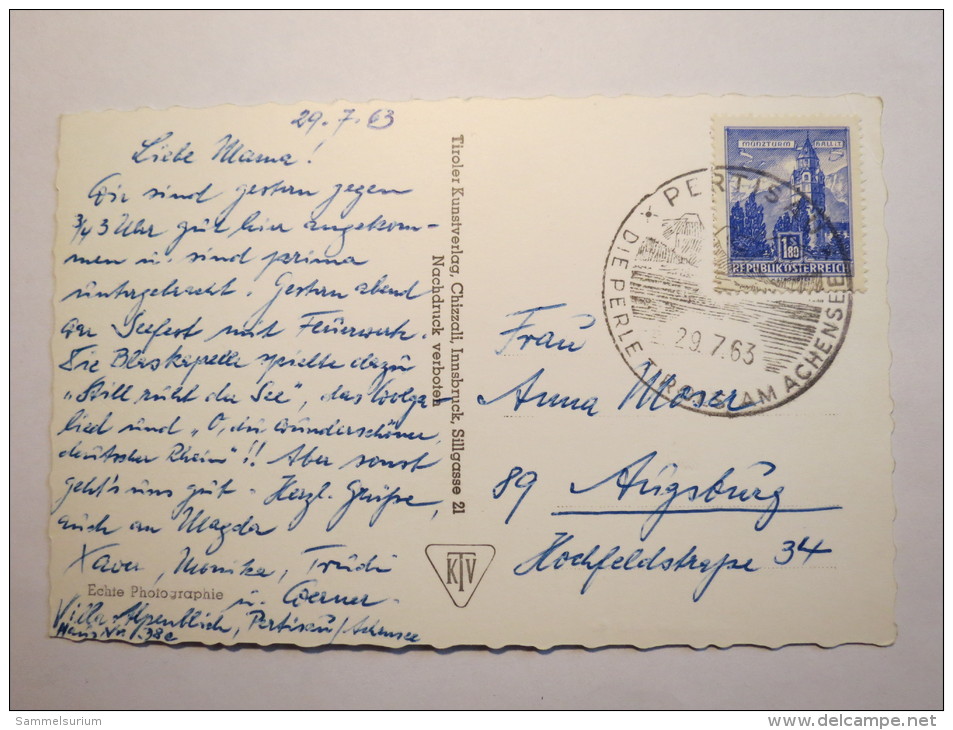 29.7.63
Liebe Mama!
Wir sind gestern gegen
3/4 3 Uhr gut hier angekom-
men u. sind prima
untergebracht. Gestern abend
war Seefest mit Feuerwerk.
Die Blaskapelle spielte dazu
„Still ruht der See", das Wolga
lied und „O, du wunderschöner,
deutscher Rhein"!! Aber sonst
geht's uns gut - Herzl. Grüße,
auch an Magda
Xaver, Monika, Trudi
u. Werner.
Echte Photographie
Villa Alpenblick, Pertisau/Achensee
Haus Nr. 38e
Tiroler Kunstverlag, Chizzali, Innsbruck, Sillgasse 21
Nachdruck verboten
KTV
MÜNZTURM HALL i. T.
S 1.80
REPUBLIK ÖSTERREICH
PERTISAU
DIE PERLE TIROLS AM ACHENSEE
29.7.63
Frau
Anna Moser
89 Augsburg
Hochfeldstraße 34
Sammelsurium
www.delcampe.net